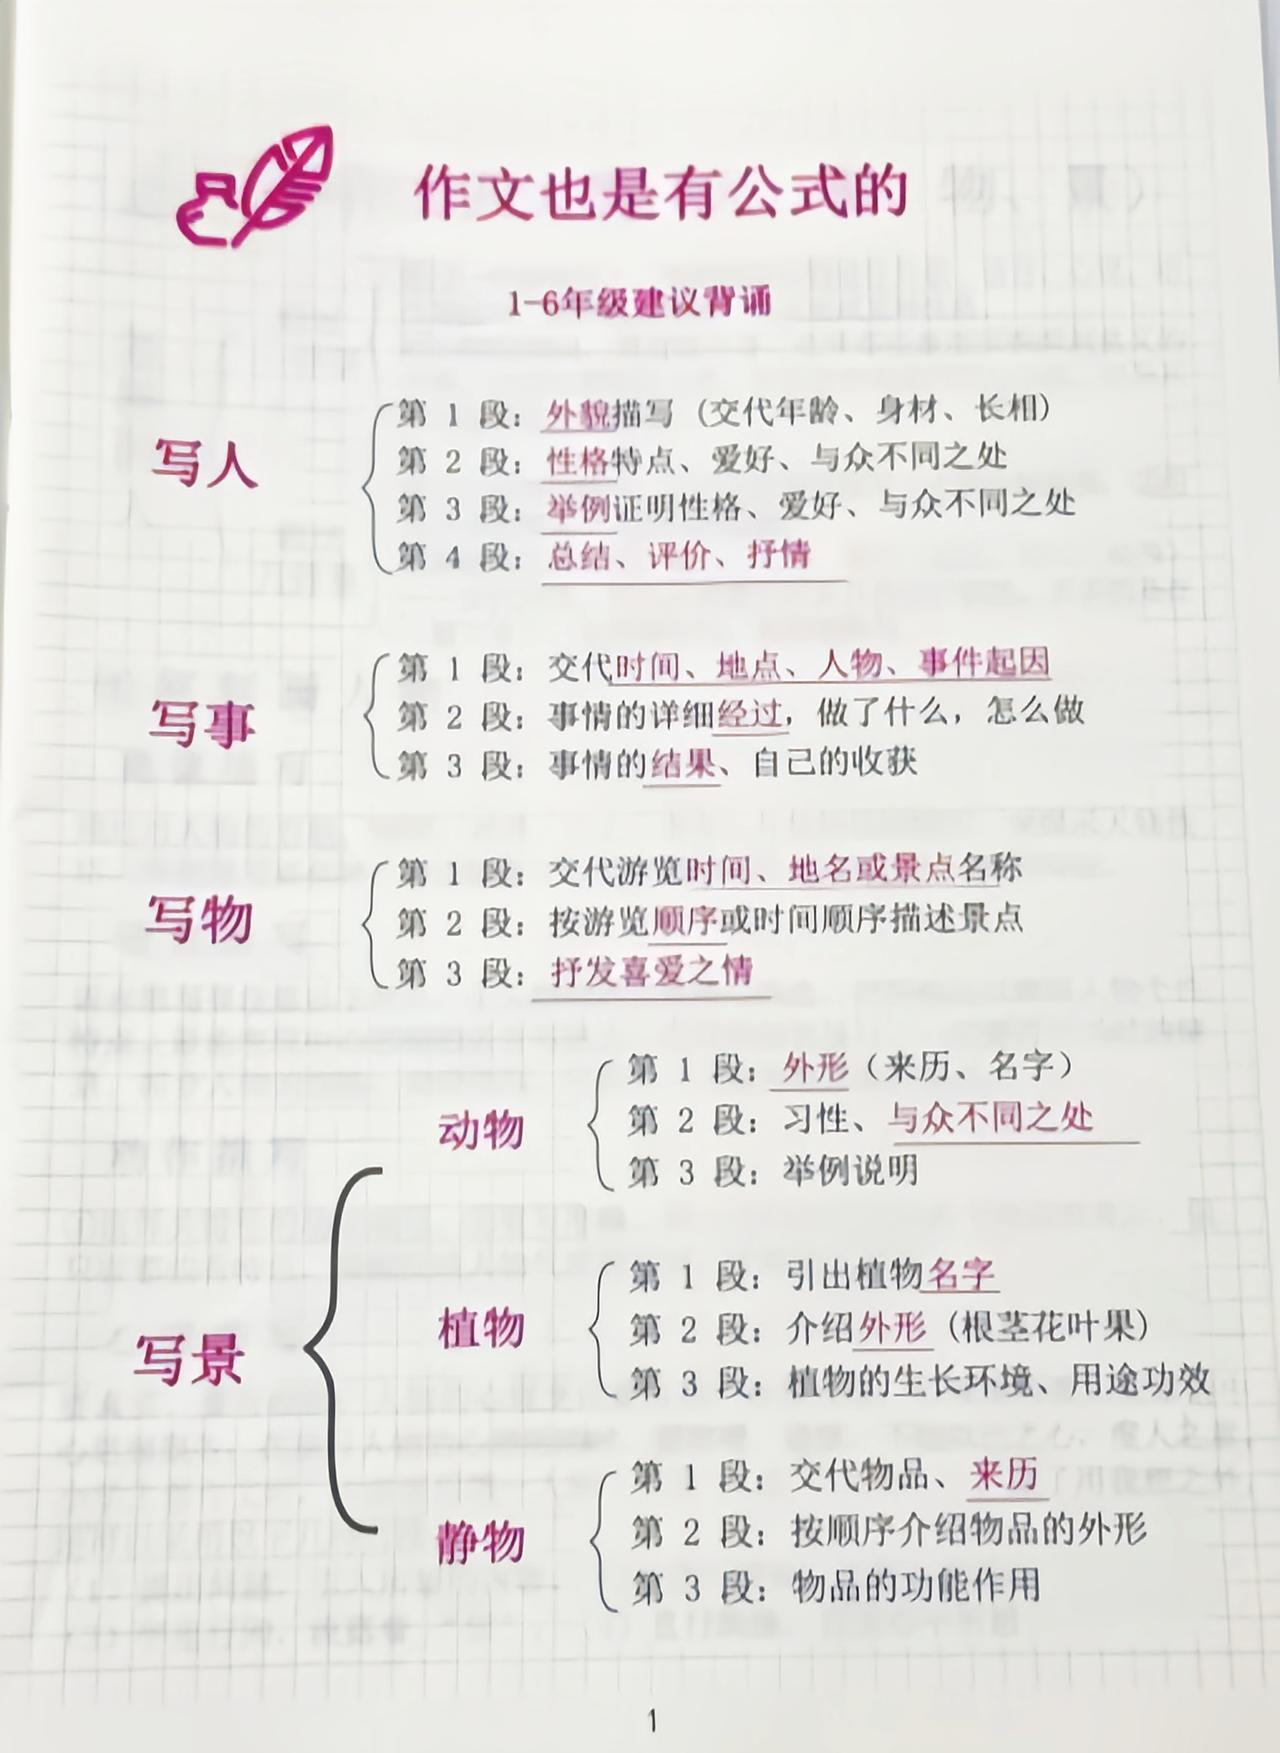 作文也是有公式的
1-6年级建议背诵
写人
第 1 段：外貌描写（交代年龄、身材、长相）
第 2 段：性格特点、爱好、与众不同之处
第 3 段：举例证明性格、爱好、与众不同之处
第 4 段：总结、评价、抒情
写事
第 1 段：交代时间、地点、人物、事件起因
第 2 段：事情的详细经过，做了什么，怎么做
第 3 段：事情的结果、自己的收获
写物
第 1 段：交代游览时间、地名或景点名称
第 2 段：按游览顺序或时间顺序描述景点
第 3 段：抒发喜爱之情
写景
动物
第 1 段：外形（来历、名字）
第 2 段：习性、与众不同之处
第 3 段：举例说明
植物
第 1 段：引出植物名字
第 2 段：介绍外形（根茎花叶果）
第 3 段：植物的生长环境、用途功效
静物
第 1 段：交代物品、来历
第 2 段：按顺序介绍物品的外形
第 3 段：物品的功能作用
1